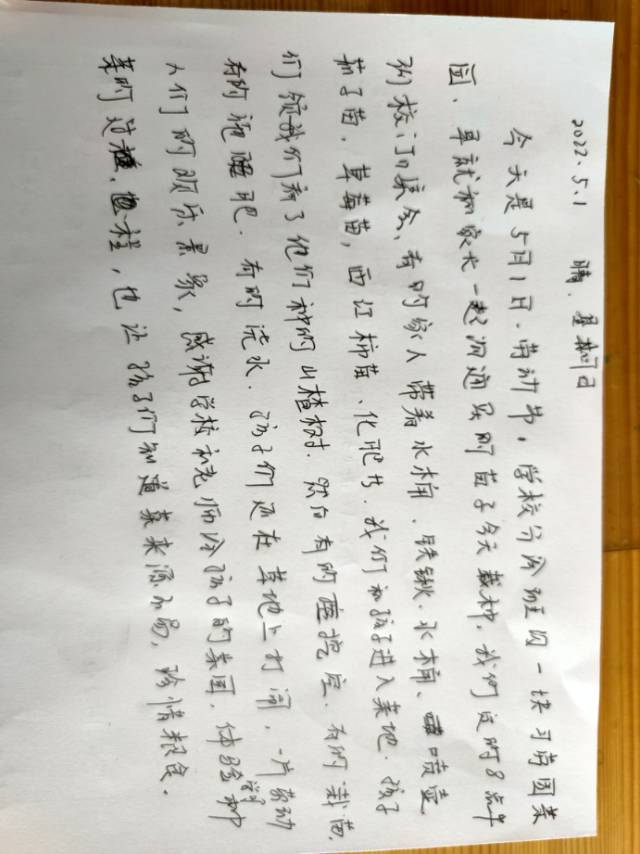 2022.5.1 晴.星期日
今天是5月1日.劳动节,学校分给班内一块习字园菜
园、早就和家长一起沟通买的苗子今天栽种,我们定的8点半
到校门口集会、有的家人带着水桶、铁锹.水桶、喷壶
茄子苗、草莓苗,西红柿苗、化肥等.我们和孩子进入菜地.孩子
们领我们看了他们种的山楂树.然后有的挖坑、有的栽苗.
有的施肥.有的浇水.孩子们还在草地上打闹,一片劳动
人们的欢乐景象,感谢学校和老师给孩子的菜园.体验学种
菜的过程,也让孩子们知道菜来源不易,珍惜粮食.